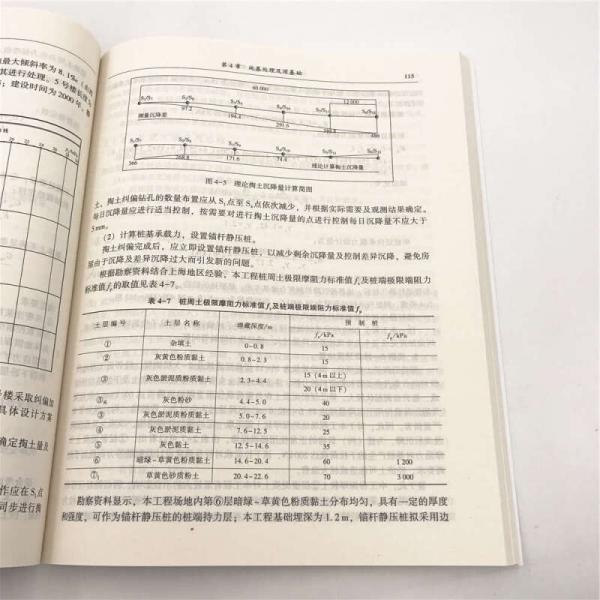 第4章 地基处理及深基础 115
60 000
12 000
97.2
194.4
291.6
测量沉降差
366
268.8
171.6
74.4
理论计算掏土沉降量
图 4-5 理论掏土沉降量计算简图
土。掏土纠偏钻孔的数量布置应从S₁点至S₉点依次减少,并根据实际需要及观测结果确定。
每日沉降量应进行适当控制,按需要对进行掏土沉降量的点进行控制每日沉降量不应大于
5 mm。
(2)计算桩基承载力,设置锚杆静压桩。
掏土纠偏完成后,应立即设置锚杆静压桩,以减少剩余沉降量及控制差异沉降,避免房
屋由于沉降及差异沉降过大而引发新的问题。
根据勘察资料结合上海地区经验,本工程桩周土极限摩阻力标准值fₛ及桩端极限端阻力
标准值fₚ的取值见表4-7。
表 4-7 桩周土极限摩阻力标准值fₛ及桩端极限端阻力标准值fₚ
土层编号 土层名称 埋藏深度/m 预制桩
fₛ/kPa fₚ/kPa
① 杂填土 0~0.8 15
② 灰黄色粉质黏土 0.8~2.3 15
③ 灰色淤泥质粉质黏土 2.3~4.4 15(4 m以上)
20(4 m以下)
灰色粉砂 4.4~5.0 40
③ 灰色淤泥质粉质黏土 5.0~7.6 20
④ 灰色淤泥质黏土 7.6~12.5 25
⑤ 灰色黏土 12.5~14.6 35
⑥ 暗绿-草黄色粉质黏土 14.6~20.4 60 1 200
⑦₁ 草黄色砂质粉土 20.4~22.6 70 3 000
勘察资料显示,本工程场地内第⑥层暗绿-草黄色粉质黏土分布均匀,具有一定的厚度
和强度,可作为锚杆静压桩的桩端持力层;本工程基础埋深为1.2 m,锚杆静压桩拟采用边
最大倾斜率为8.15‰
其进行处理。5号楼长度为
建设时间为2000年,
号楼采取纠偏加
具体设计方案
确定掏土量及
作应在S₁点
同步进行掏